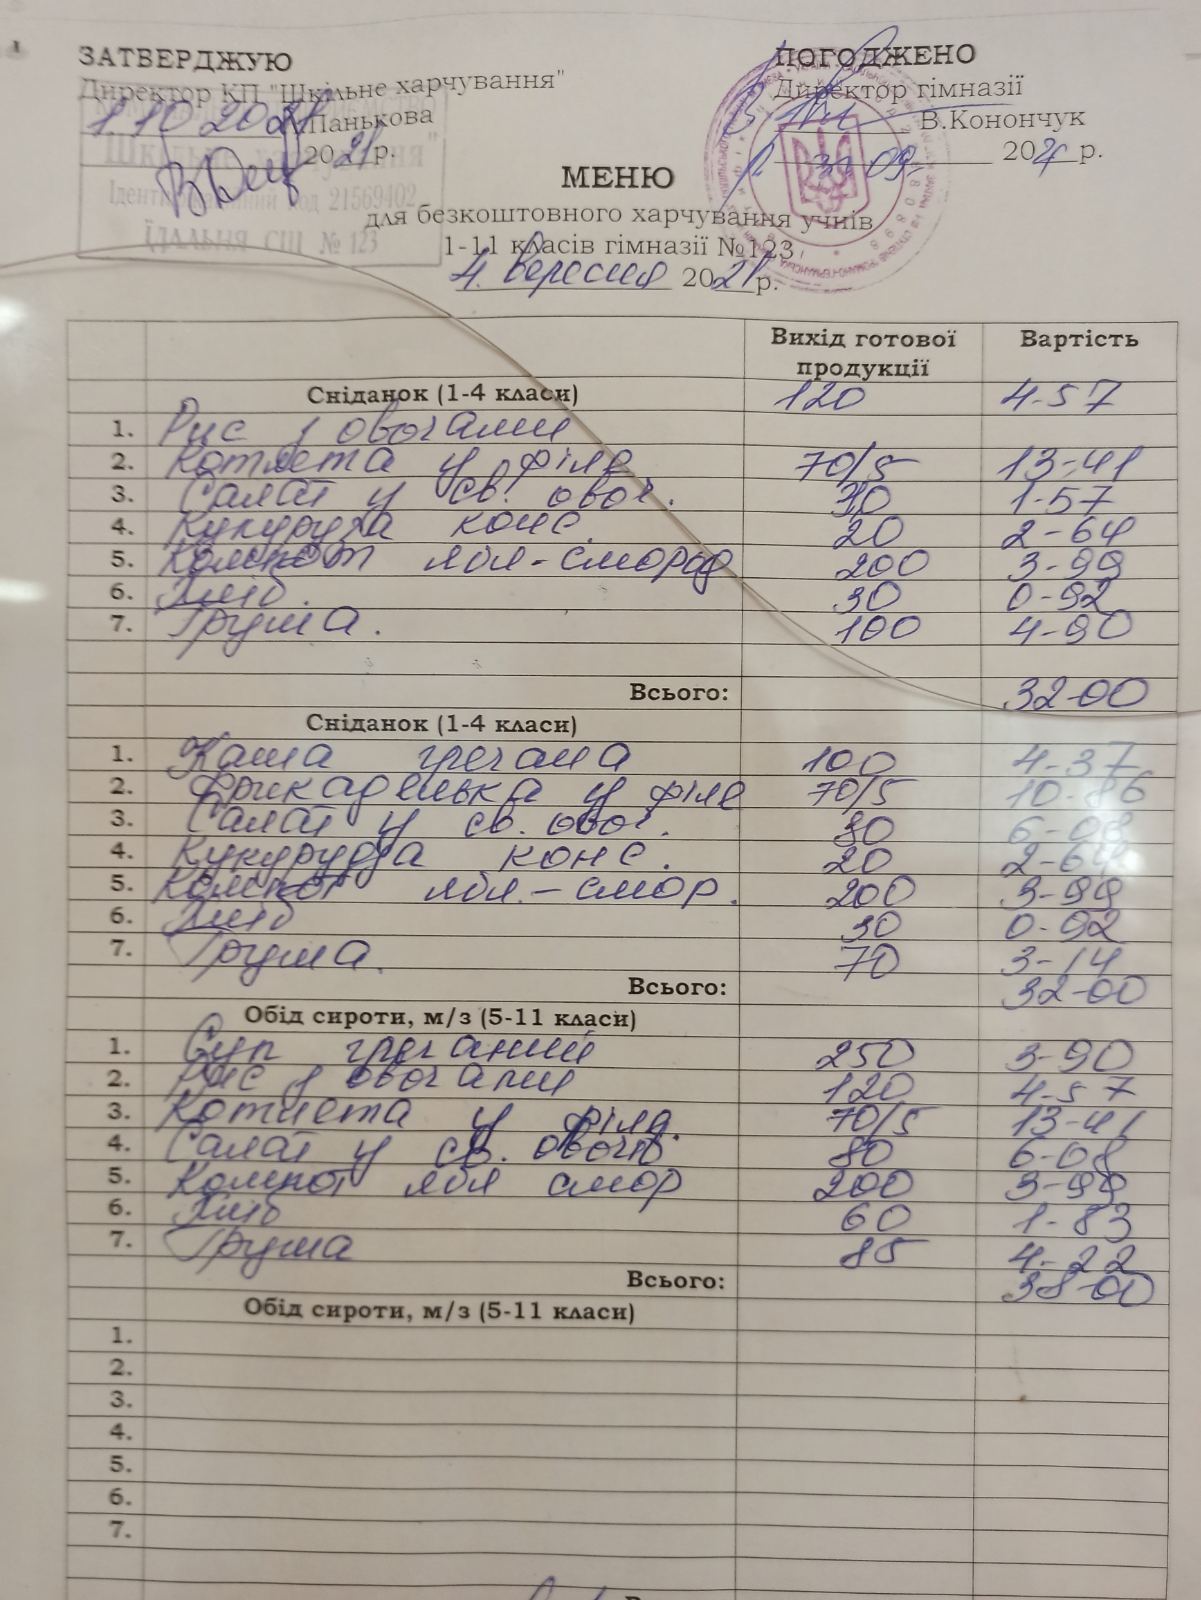 ЗАТВЕРДЖУЮ
Директор КП "Шкільне харчування"
1.10.2021 Панькова
2021р.
Шкільне харчування"
Ідентифікаційний код 21569402
ЇДАЛЬНЯ СШ № 123
ПОГОДЖЕНО
Директор гімназії
В.Конончук
30 09. 202 р.
МЕНЮ
для безкоштовного харчування учнів
1-11 класів гімназії №123
4. вересня 2021р.
Вихід готової продукції Вартість
Сніданок (1-4 класи) 120 4-57
1. Рис з овочами
2. Котлета у філе 70/5 13-41
3. Салат у св. овоч. 30 1-57
4. Кукурудза конс. 20 2-64
5. Компот ябл-смород 200 3-99
6. Хліб. 30 0-92
7. Груша. 100 4-90
Всього: 32-00
Сніданок (1-4 класи)
1. Каша гречана 100 4-37
2. Фрикаделька у філе 70/5 10-86
3. Салат у св. овоч. 80 6-08
4. Кукурудза конс. 20 2-64
5. Компот ябл.-смор. 200 3-99
6. Хліб 30 0-92
7. Груша. 70 3-14
Всього: 32-00
Обід сироти, м/з (5-11 класи)
1. Суп гречаний 250 3-90
2. Рис з овочами 120 4-57
3. Котлета у філе. 70/5 13-41
4. Салат у св. овочів 80 6-08
5. Компот ябл смор 200 3-99
6. Хліб 60 1-83
7. Груша 85 4-22
Всього: 38-00
Обід сироти, м/з (5-11 класи)
1.
2.
3.
4.
5.
6.
7.